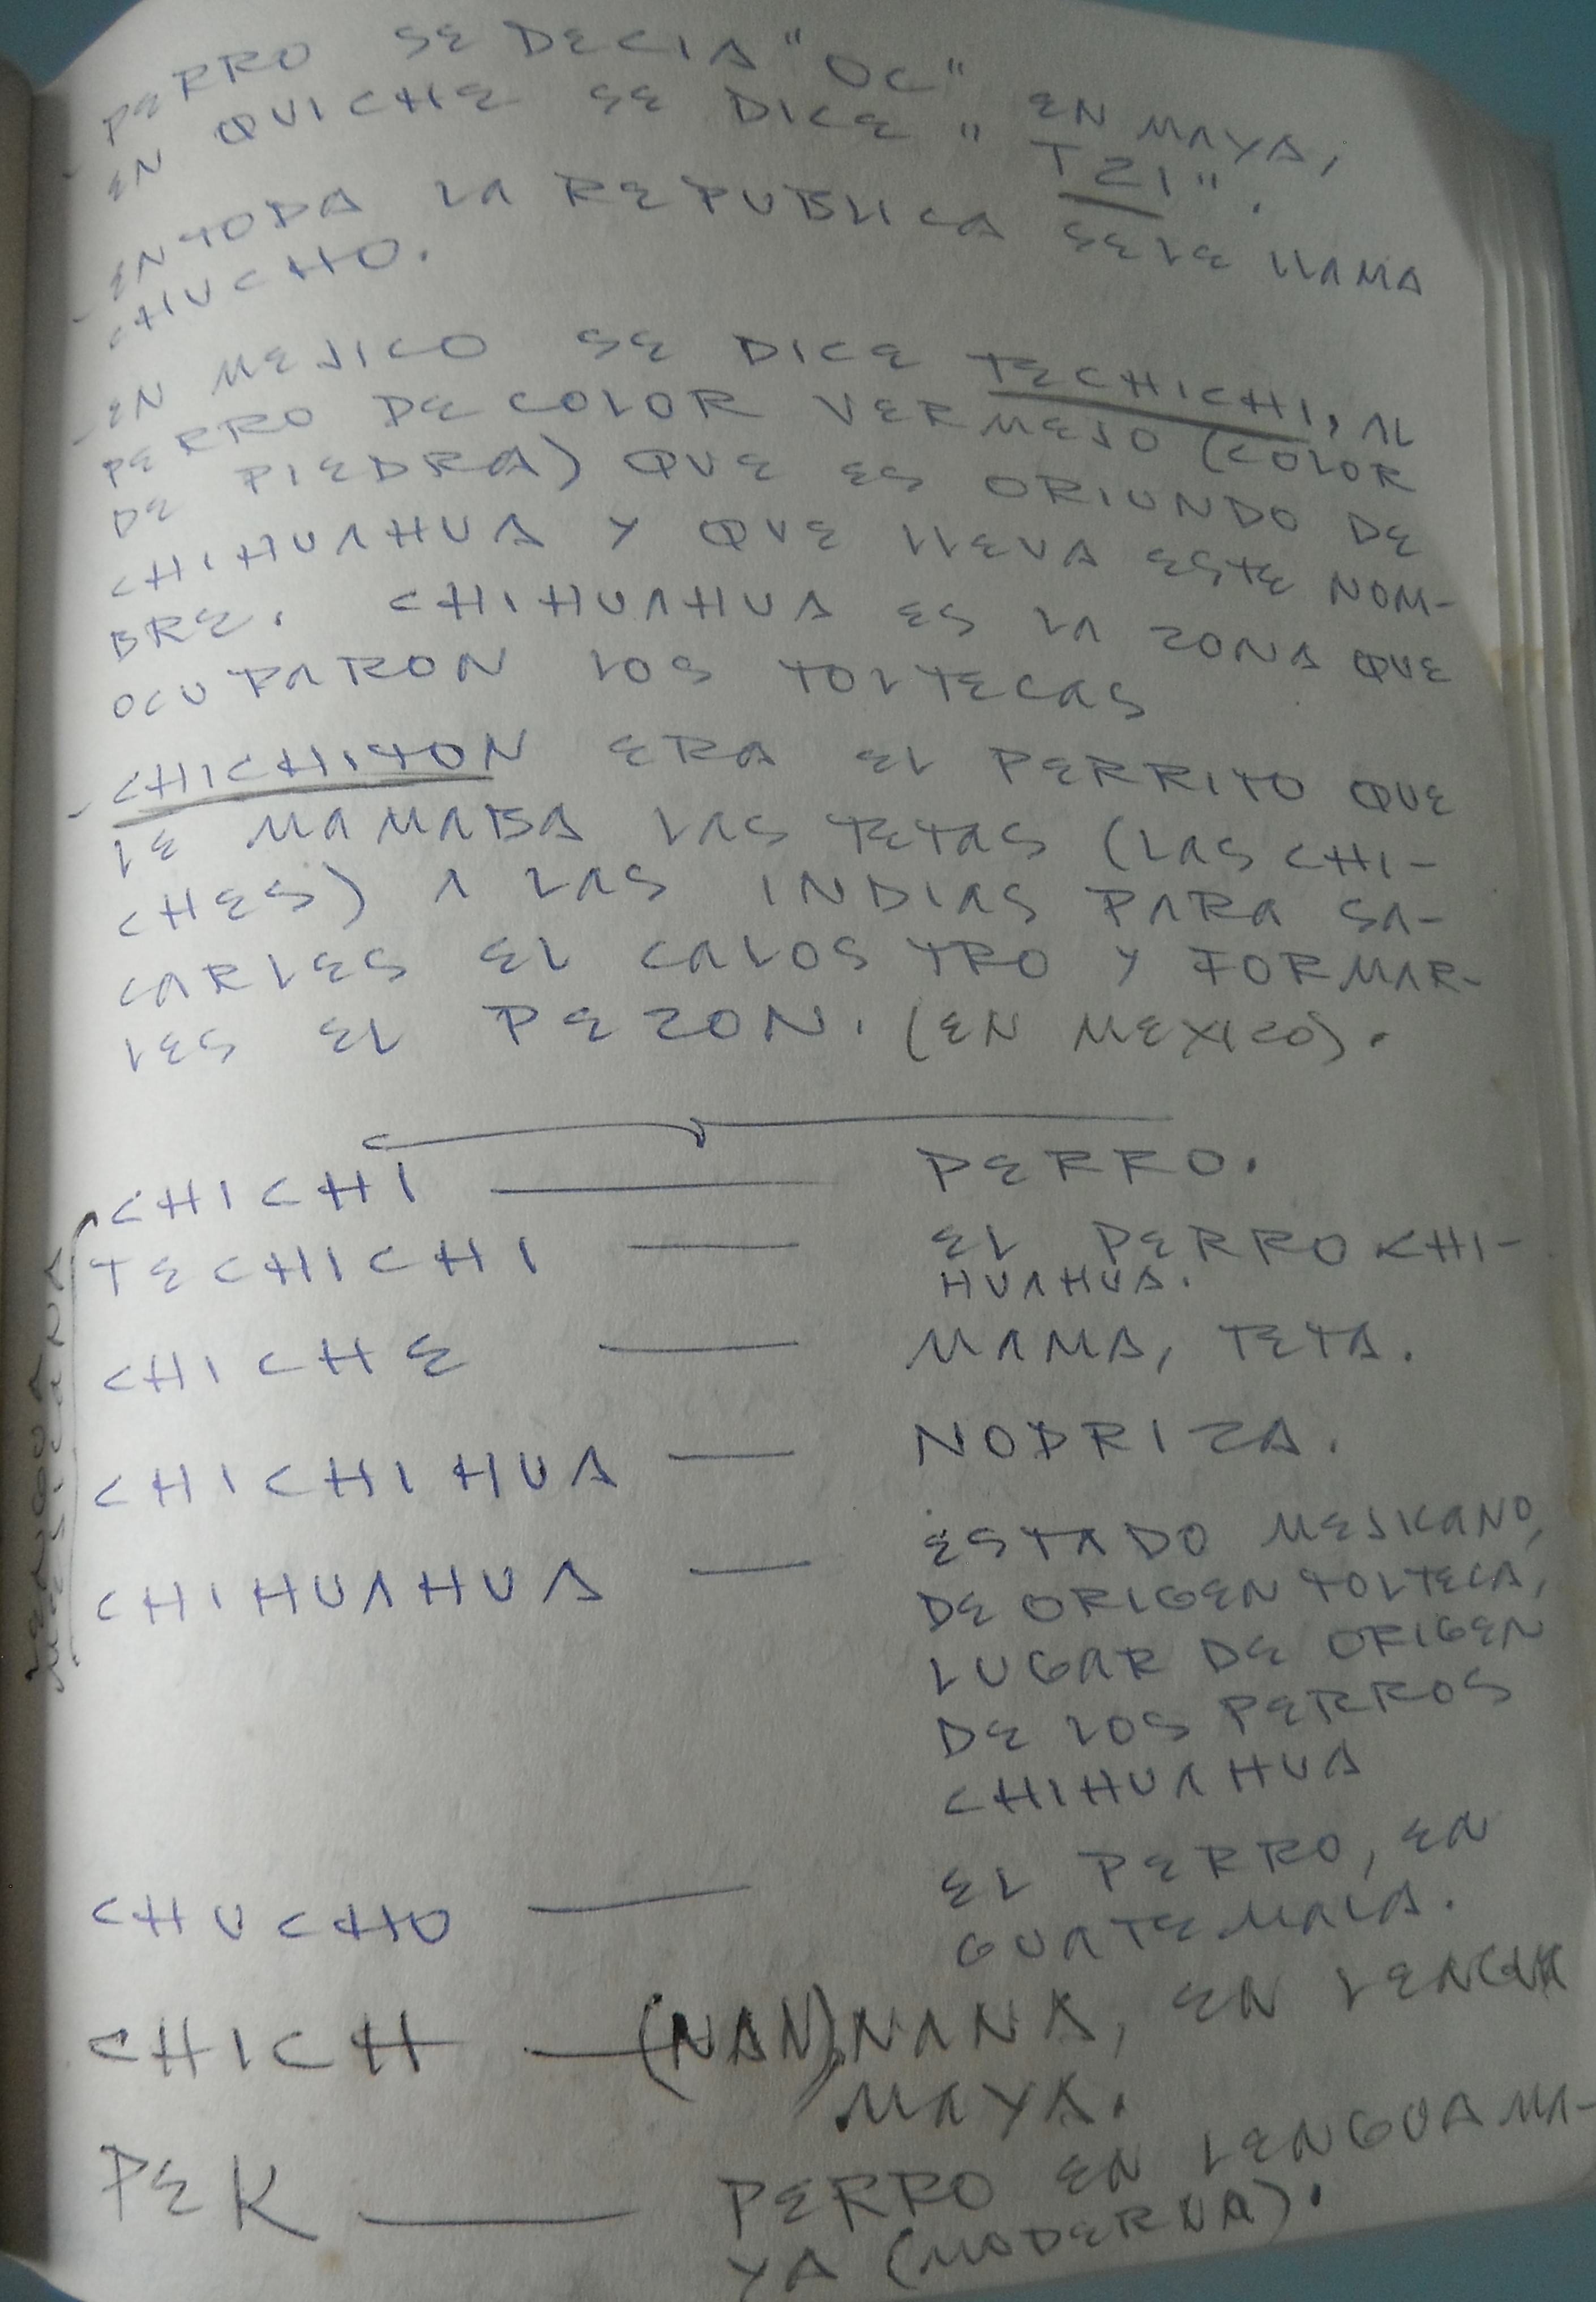 - PERRO SE DECIA "OC" EN MAYA,
EN QUICHE SE DICE "TZI".
- EN TODA LA REPUBLICA SE LE LLAMA
CHUCHO.
- EN MEJICO SE DICE TECHICHI, AL
PERRO DE COLOR VERMEJO (COLOR
DE PIEDRA) QUE ES ORIUNDO DE
CHIHUAHUA Y QUE LLEVA ESTE NOM-
BRE. CHIHUAHUA ES LA ZONA QUE
OCUPARON LOS TOLTECAS
- CHICHITON ERA EL PERRITO QUE
LE MAMABA LAS TETAS (LAS CHI-
CHES) A LAS INDIAS PARA SA-
CARLES EL CALOSTRO Y FORMAR-
LES EL PEZON. (EN MEXICO).
CHICHI — PERRO.
TECHICHI — EL PERRO CHI-
HUAHUA.
CHICHE — MAMA, TETA.
CHICHIHUA — NODRIZA.
CHIHUAHUA — ESTADO MEJICANO,
DE ORIGEN TOLTECA,
LUGAR DE ORIGEN
DE LOS PERROS
CHIHUAHUA
CHUCHO — EL PERRO, EN
GUATEMALA.
CHICH — (NAN) NANA, EN LENGUA
MAYA.
PEK — PERRO EN LENGUA MA-
YA (MODERNA).
LENGUA
MEJICANA